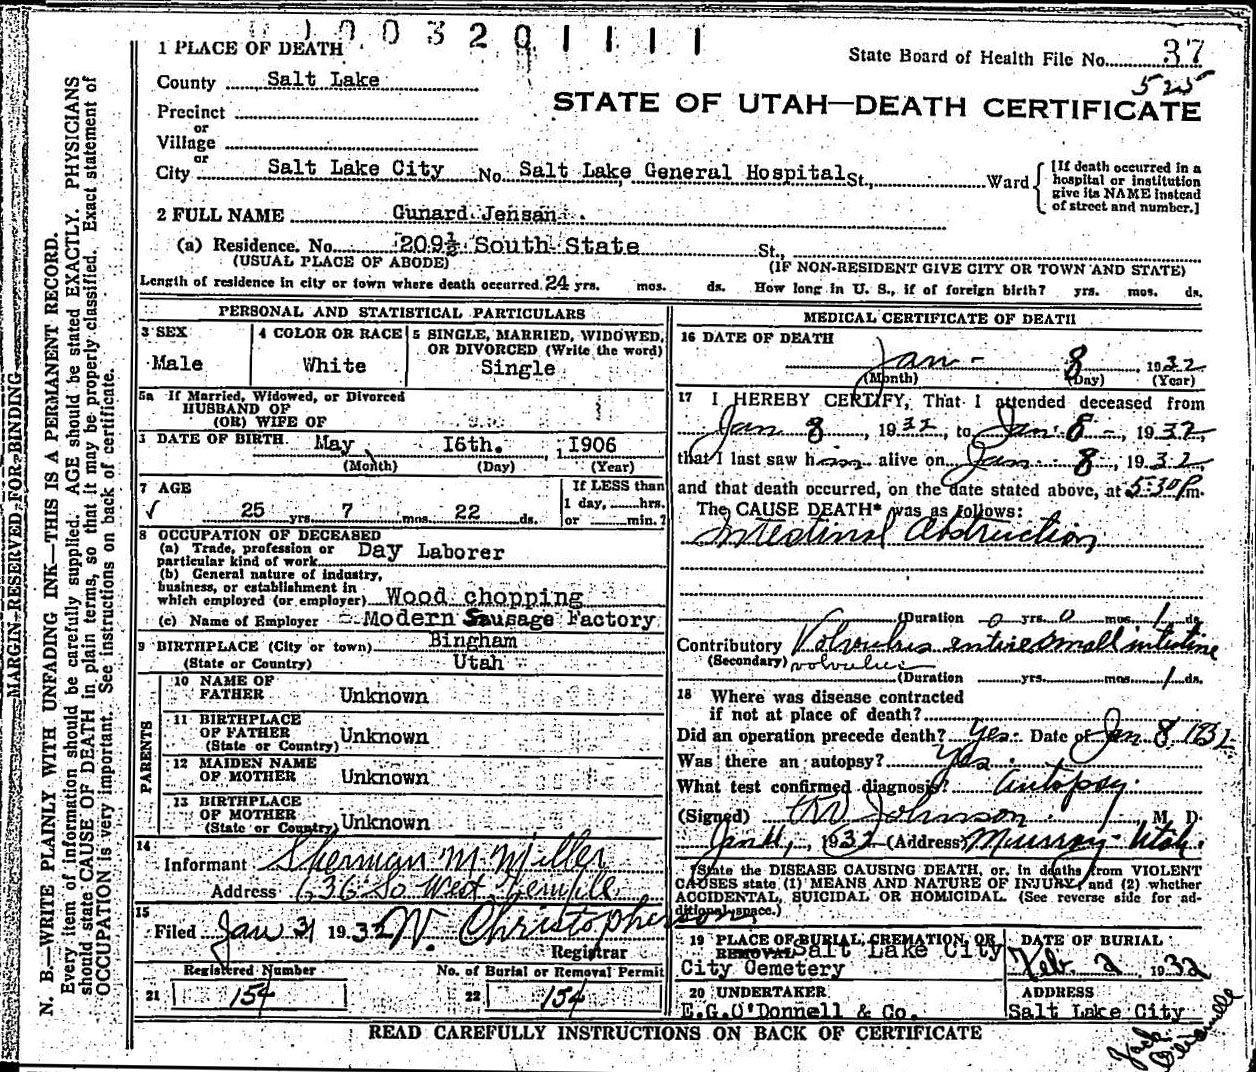 003201111
1 PLACE OF DEATH
State Board of Health File No. 37
525
County Salt Lake
STATE OF UTAH—DEATH CERTIFICATE
Precinct
or
Village
or
City Salt Lake City No. Salt Lake General Hospital St., Ward
[If death occurred in a
hospital or institution
give its NAME instead
of street and number.]
2 FULL NAME Gunard Jensen
(a) Residence. No. 209½ South State St.,
(USUAL PLACE OF ABODE) (IF NON-RESIDENT GIVE CITY OR TOWN AND STATE)
Length of residence in city or town where death occurred. 24 yrs. mos. ds. How long in U. S., if of foreign birth? yrs. mos. ds.
PERSONAL AND STATISTICAL PARTICULARS
3 SEX
Male
4 COLOR OR RACE
White
5 SINGLE, MARRIED, WIDOWED,
OR DIVORCED (Write the word)
Single
5a If Married, Widowed, or Divorced
HUSBAND OF
(OR) WIFE OF
DATE OF BIRTH May 16th. 1906
(Month) (Day) (Year)
7 AGE
25 yrs. 7 mos. 22 ds.
If LESS than
1 day, hrs.
or min.?
8 OCCUPATION OF DECEASED
(a) Trade, profession or
particular kind of work Day Laborer
(b) General nature of industry,
business, or establishment in
which employed (or employer) Wood chopping
(c) Name of Employer Modern Sausage Factory
9 BIRTHPLACE (City or town) Bingham
(State or Country) Utah
PARENTS
10 NAME OF
FATHER Unknown
11 BIRTHPLACE
OF FATHER
(State or Country) Unknown
12 MAIDEN NAME
OF MOTHER Unknown
13 BIRTHPLACE
OF MOTHER
(State or Country) Unknown
14
Informant Sherman M. Miller
Address 636 So West Temple
15
Filed Jan 31 1932 W. Christopherson
Registrar
Registered Number
21 154
No. of Burial or Removal Permit
22 154
MEDICAL CERTIFICATE OF DEATH
16 DATE OF DEATH
Jan - 8 1932
(Month) (Day) (Year)
17 I HEREBY CERTIFY, That I attended deceased from
Jan 8, 1932, to Jan. 8 -, 1932,
that I last saw him alive on Jan 8, 1932,
and that death occurred, on the date stated above, at 5:30 P.m.
The CAUSE DEATH* was as follows:
Intestinal Obstruction
(Duration 0 yrs. 0 mos. 1 ds.
Contributory Volvulus entire small intestine
(Secondary) volvulus
(Duration yrs. mos. 1 ds.
18 Where was disease contracted
if not at place of death?
Did an operation precede death? Yes. Date of Jan 8 1932
Was there an autopsy? Yes.
What test confirmed diagnosis? Autopsy.
(Signed) Johnson M. D.
Jan 11, 1932 (Address) Murray - Utah.
*State the DISEASE CAUSING DEATH, or, in deaths from VIOLENT
CAUSES state (1) MEANS AND NATURE OF INJURY, and (2) whether
ACCIDENTAL, SUICIDAL OR HOMICIDAL. (See reverse side for ad-
ditional space.)
19 PLACE OF BURIAL, CREMATION, OR
REMOVAL Salt Lake City
City Cemetery
DATE OF BURIAL
Feb. 2 1932
20 UNDERTAKER
E.G.O'Donnell & Co.
ADDRESS
Salt Lake City
READ CAREFULLY INSTRUCTIONS ON BACK OF CERTIFICATE
Jack
MARGIN RESERVED FOR BINDING
N. B.—WRITE PLAINLY WITH UNFADING INK—THIS IS A PERMANENT RECORD.
Every item of information should be carefully supplied. AGE should be stated EXACTLY. PHYSICIANS
should state CAUSE OF DEATH in plain terms, so that it may be properly classified. Exact statement of
OCCUPATION is very important. See instructions on back of certificate.